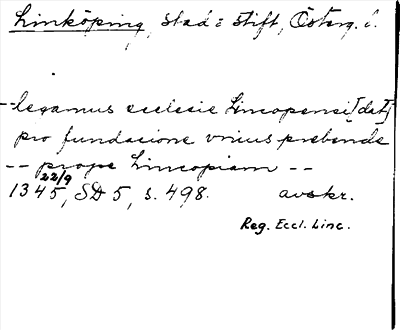 Linköping, stad o stift, Österg. l.
-- legamus ecclesie Lincopensi [dat]
pro fundacione vnius prebende
-- prope Lincopiam --
1345 22/9, SD 5, s. 498. avskr.
Reg. Eccl. Linc.